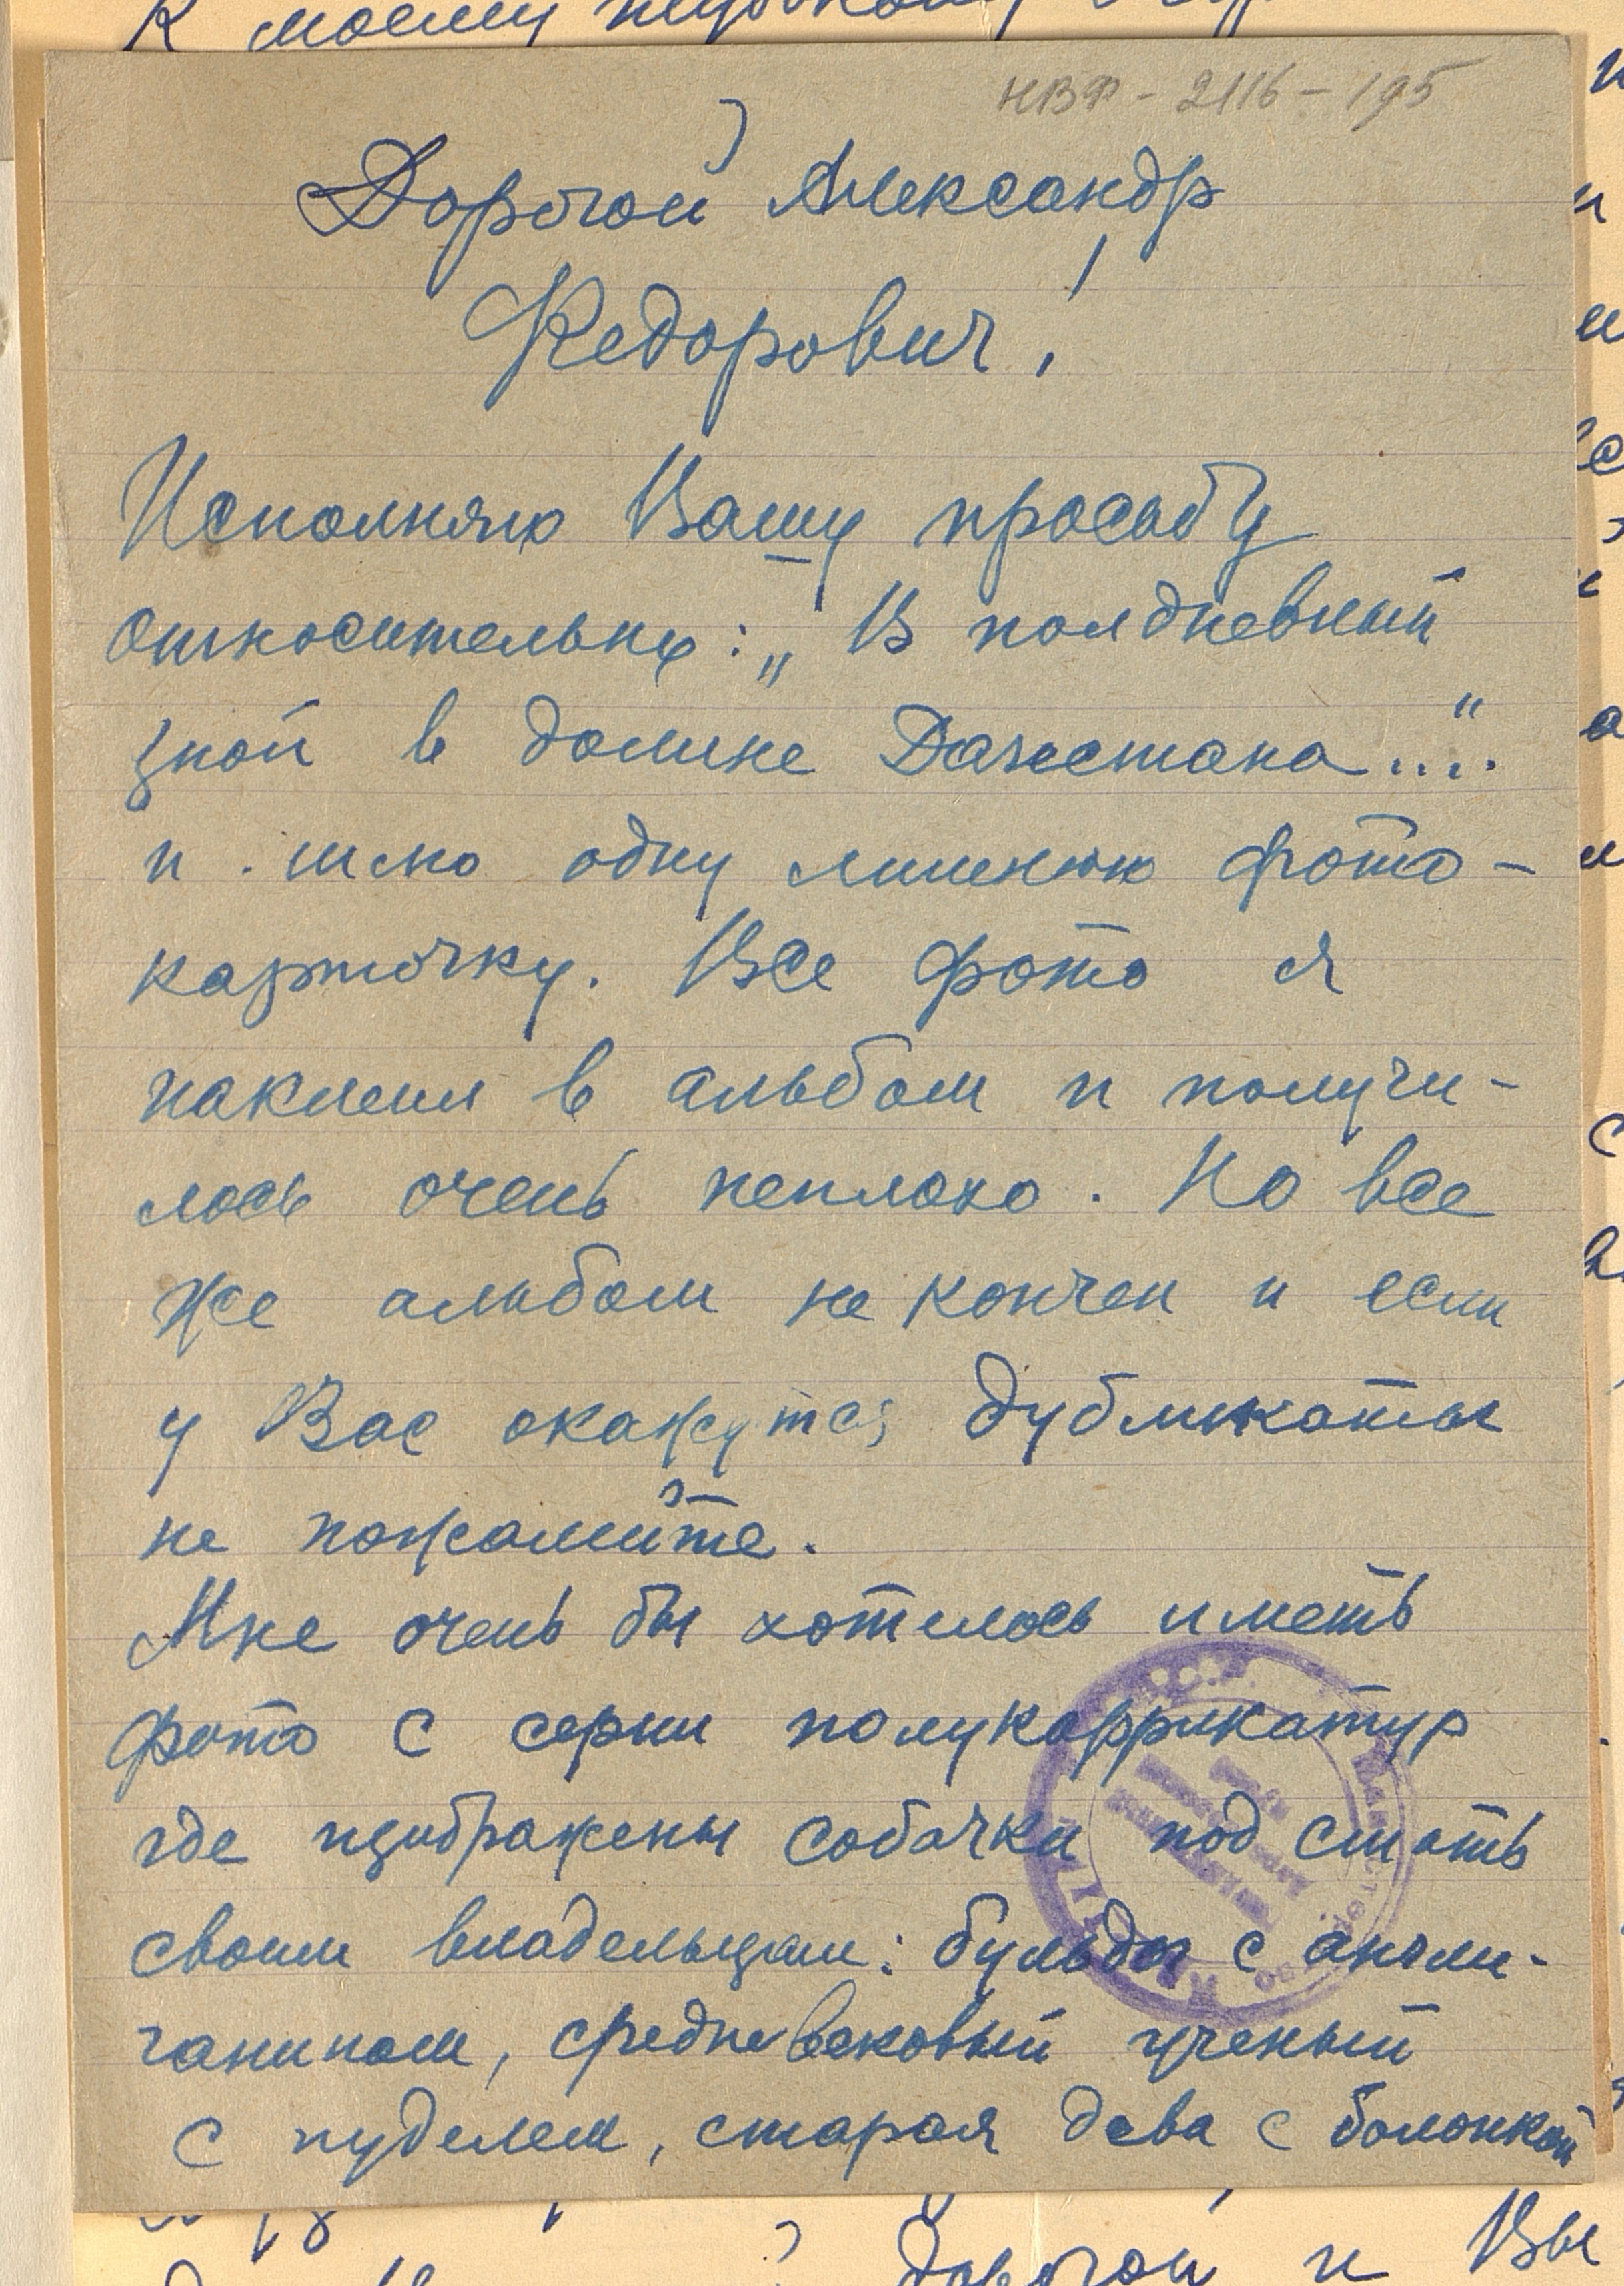 К моему глубокому
НВФ - 2116 - 195
Дорогой Александр
Федорович!
Исполняю Вашу просьбу
относительно: „В полдневный
зной в долине Дагестана...."
и шлю одну лишнюю фото-
карточку. Все фото я
наклеил в альбом и получи-
лось очень неплохо. Но все
же альбом не кончен и если
у Вас окажутся дубликаты
не пожалейте.
Мне очень бы хотелось иметь
фото с серии полукаррикатур
где изображены собачки под стать
своим владельцам: бульдог с англи-
чанином, средневековый ученый
с пуделем, старая дева с болонкой
дорогой и Вы